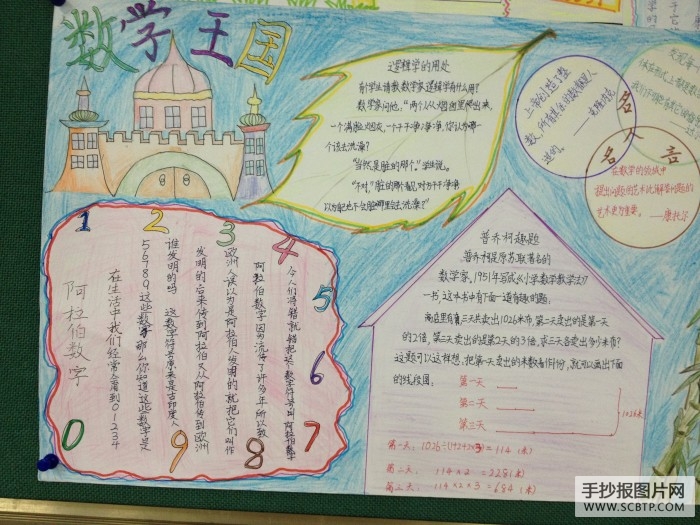 数学王国
逻辑学的用处
有个学生请教数学家逻辑学有什么用?
数学家问他,“两个人从烟囱里爬出来,
一个满脸烟灰,一个干干净净,你认为哪一
个该去洗澡?
“当然是脏的那个。”学生说。
“不对,脏的那个看见对方干干净净
以为自己也不会脏哪里会去洗澡?”
上帝创造了整
数,所有其余的数都是人
造的。
——克隆内克
名人名言
在数学的领域中
提出问题的艺术比解答问题的
艺术更为重要。
——康托尔
1 2 3 4 5 6 7 8 9 0
阿拉伯数字
在生活中我们经常会看到01234
56789这些数字那么你知道这些数字是
谁发明的吗 这数字符号原来是古印度人
发明的后来传到阿拉伯又从阿拉伯传到欧洲
欧洲人误以为是阿拉伯人发明的就把它们叫作
阿拉伯数字因为流传了许多年所以教
令人们将错就错把这数字符号叫阿拉伯数字
普乔柯趣题
普乔柯是原苏联著名的
数学家。1951年写成《小学数学教学法》
一书,这本书中有下面一道有趣的题:
商店里有三天共卖出1026米布,第二天卖出的是第一天
的2倍,第三天卖出的是第2天的3倍,求三天各卖出多少米布?
这题可以这样想,把第一天卖出的米数看作1份,就可以画出下面
的线段图:
第一天
第二天
第三天
1026米
第一天:1026÷(1+2+2×3)=114(米)
第二天:114×2=228(米)
第三天:114×2×3=684(米)
手抄报图片网
WWW.SCBTP.COM